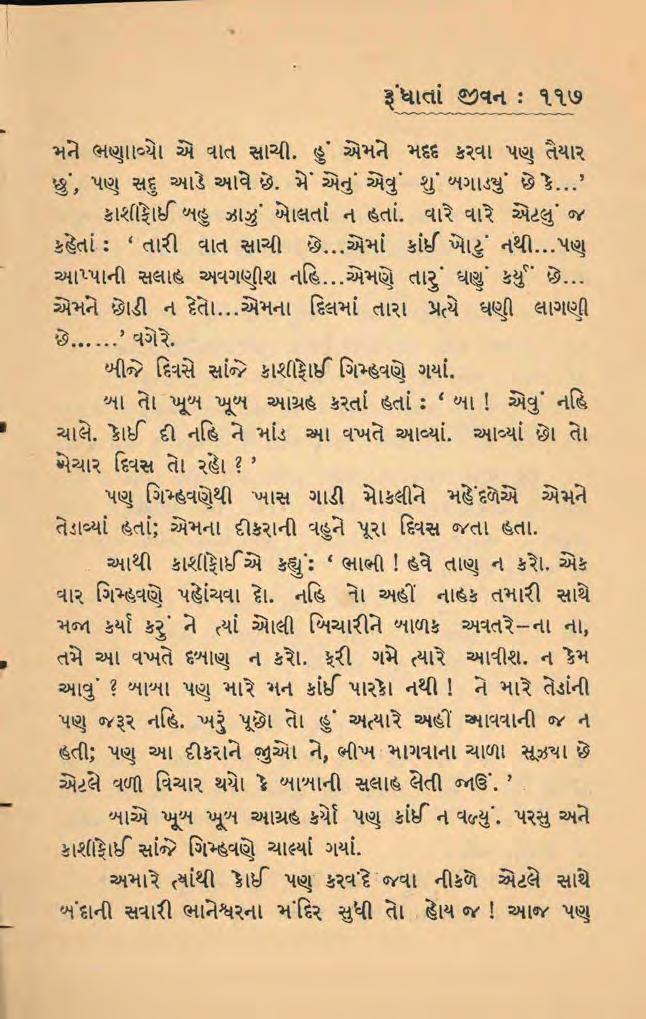 રૂંધાતાં જીવન : ૧૧૭
મને ભણાાવ્યો એ વાત સાચી. હું એમને મદદ કરવા પણ તૈયાર
છું, પણ સદ્દુ આડે આવે છે. મેં એનું એવું શું બગાડ્યું છે કે...’
કાશીફોઈ બહુ ઝાઝું બોલતાં ન હતાં. વારે વારે એટલું જ
કહેતાં : ‘ તારી વાત સાચી છે...એમાં કાંઈ ખોટું નથી...પણ
આપ્પાની સલાહ અવગણીશ નહિ...એમણે તારું ઘણું કર્યું છે...
એમને છોડી ન દેતો...એમના દિલમાં તારા પ્રત્યે ઘણી લાગણી
છે......’ વગેરે.
બીજે દિવસે સાંજે કાશીફોઈ ગિમ્હવણે ગયાં.
બા તો ખૂબ ખૂબ આગ્રહ કરતાં હતાં : ‘ બા ! એવું નહિ
ચાલે. કોઈ દી નહિ ને માંડ આ વખતે આવ્યાં. આવ્યાં છો તો
બેચાર દિવસ તો રહો ? ’
પણ ગિમ્હવણેથી ખાસ ગાડી મોકલીને મહેંદળેએ એમને
તેડાવ્યાં હતાં; એમના દીકરાની વહુને પૂરા દિવસ જતા હતા.
આથી કાશીફોઈએ કહ્યું: ‘ ભાભી ! હવે તાણ ન કરો. એક
વાર ગિમ્હવણે પહોંચવા દો. નહિ તો અહીં નાહક તમારી સાથે
મજા કર્યા કરું ને ત્યાં ઓલી બિચારીને બાળક અવતરે–ના ના,
તમે આ વખતે દબાણ ન કરો. ફરી ગમે ત્યારે આવીશ. ન કેમ
આવું ? બાબા પણ મારે મન કાંઈ પારકો નથી ! ને મારે તેડાંની
પણ જરૂર નહિ. ખરું પૂછો તો હું અત્યારે અહીં આવવાની જ ન
હતી; પણ આ દીકરાને જુઓ ને, ભીખ માગવાના ચાળા સૂઝ્યા છે
એટલે વળી વિચાર થયો કે બાબાની સલાહ લેતી જાઉં. ’
બાએ ખૂબ ખૂબ આગ્રહ કર્યો પણ કાંઈ ન વળ્યું. પરસુ અને
કાશીફોઈ સાંજે ગિમ્હવણે ચાલ્યાં ગયાં.
અમારે ત્યાંથી કોઈ પણ કરવંદે જવા નીકળે એટલે સાથે
બંદાની સવારી ભાનેશ્વરના મંદિર સુધી તો હોય જ ! આજ પણ